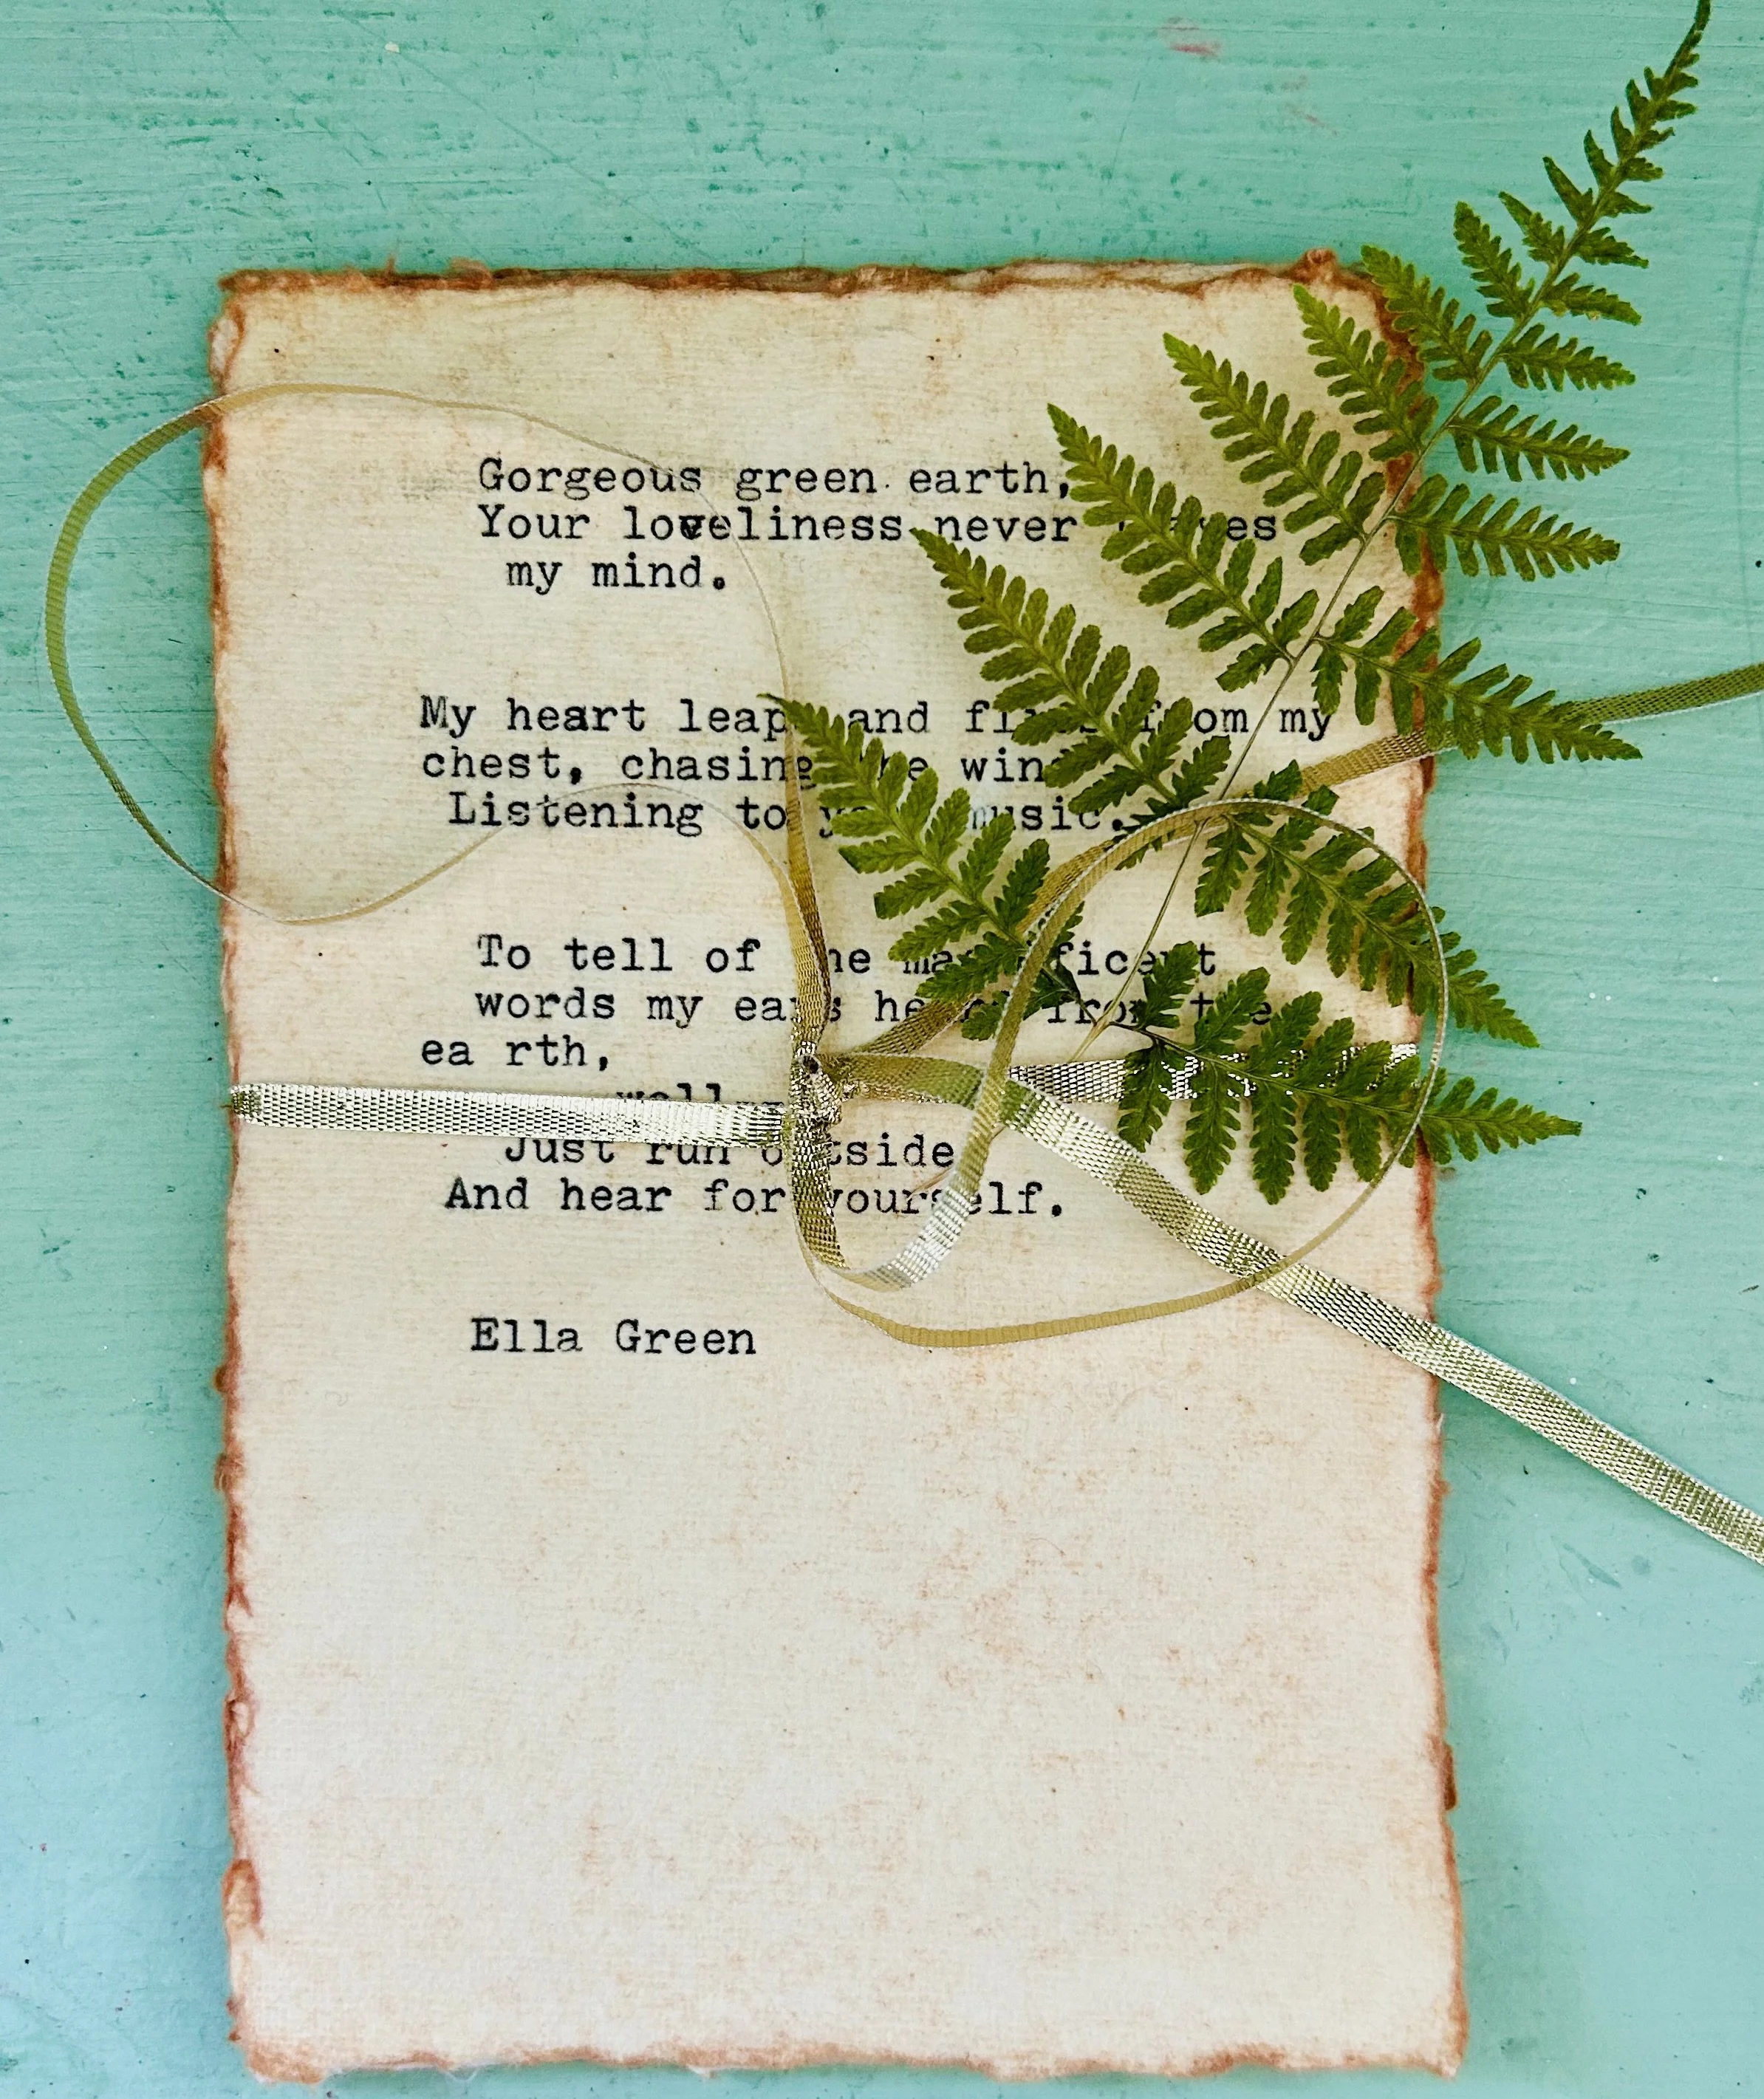 Gorgeous green earth,
Your loveliness never leaves
my mind.
My heart leaps and flies from my
chest, chasing the wind
Listening to your music.
To tell of the magnificent
words my ears heard from the
ea rth,
well
Just run outside
And hear for yourself.
Ella Green